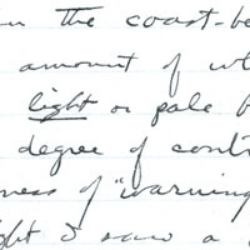 in the coast-be
amount of wh
light or pale b
degree of contr
ness of "warning
ght I saw a